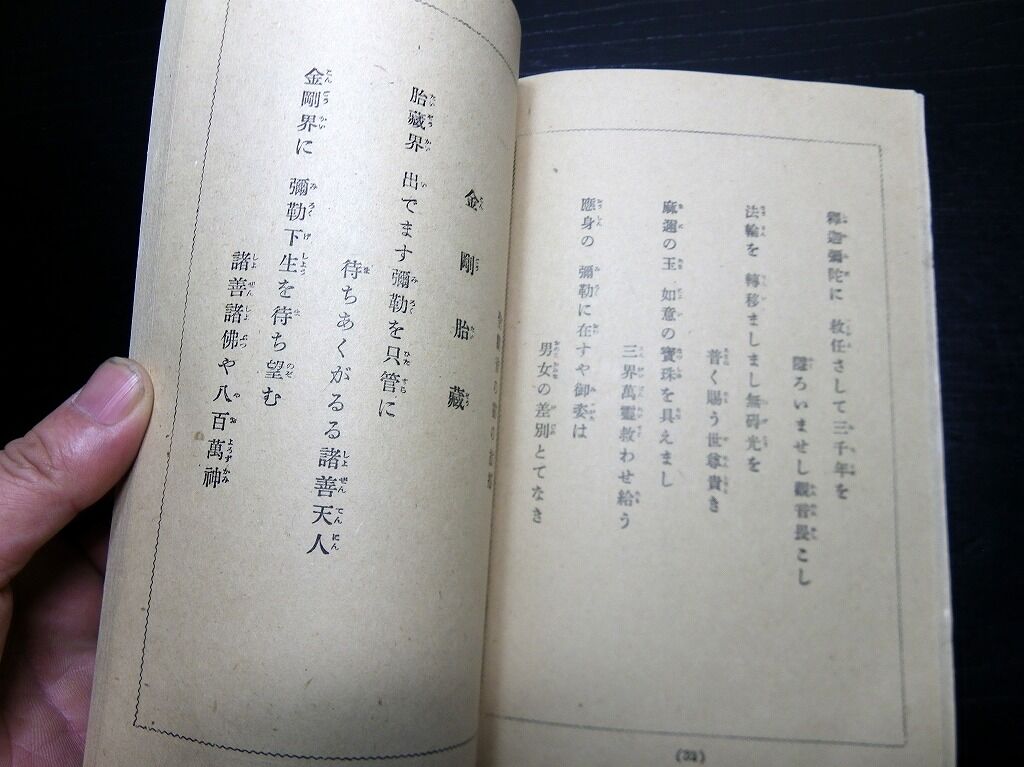 釋迦彌陀に 救任さして三千年を
隱ろいませし觀音畏こし
法輪を 轉移ましまし無碍光を
普く賜う世尊貴き
麻邇の玉 如意の寶珠を具えまし
三界萬靈救わせ給う
應身の 彌勒に在すや御姿は
男女の差別とてなき
(32)
金剛胎藏
胎藏界 出でます彌勒を只管に
待ちあくがるる諸善天人
金剛界に 彌勒下生を待ち望む
諸善諸佛や八百萬神